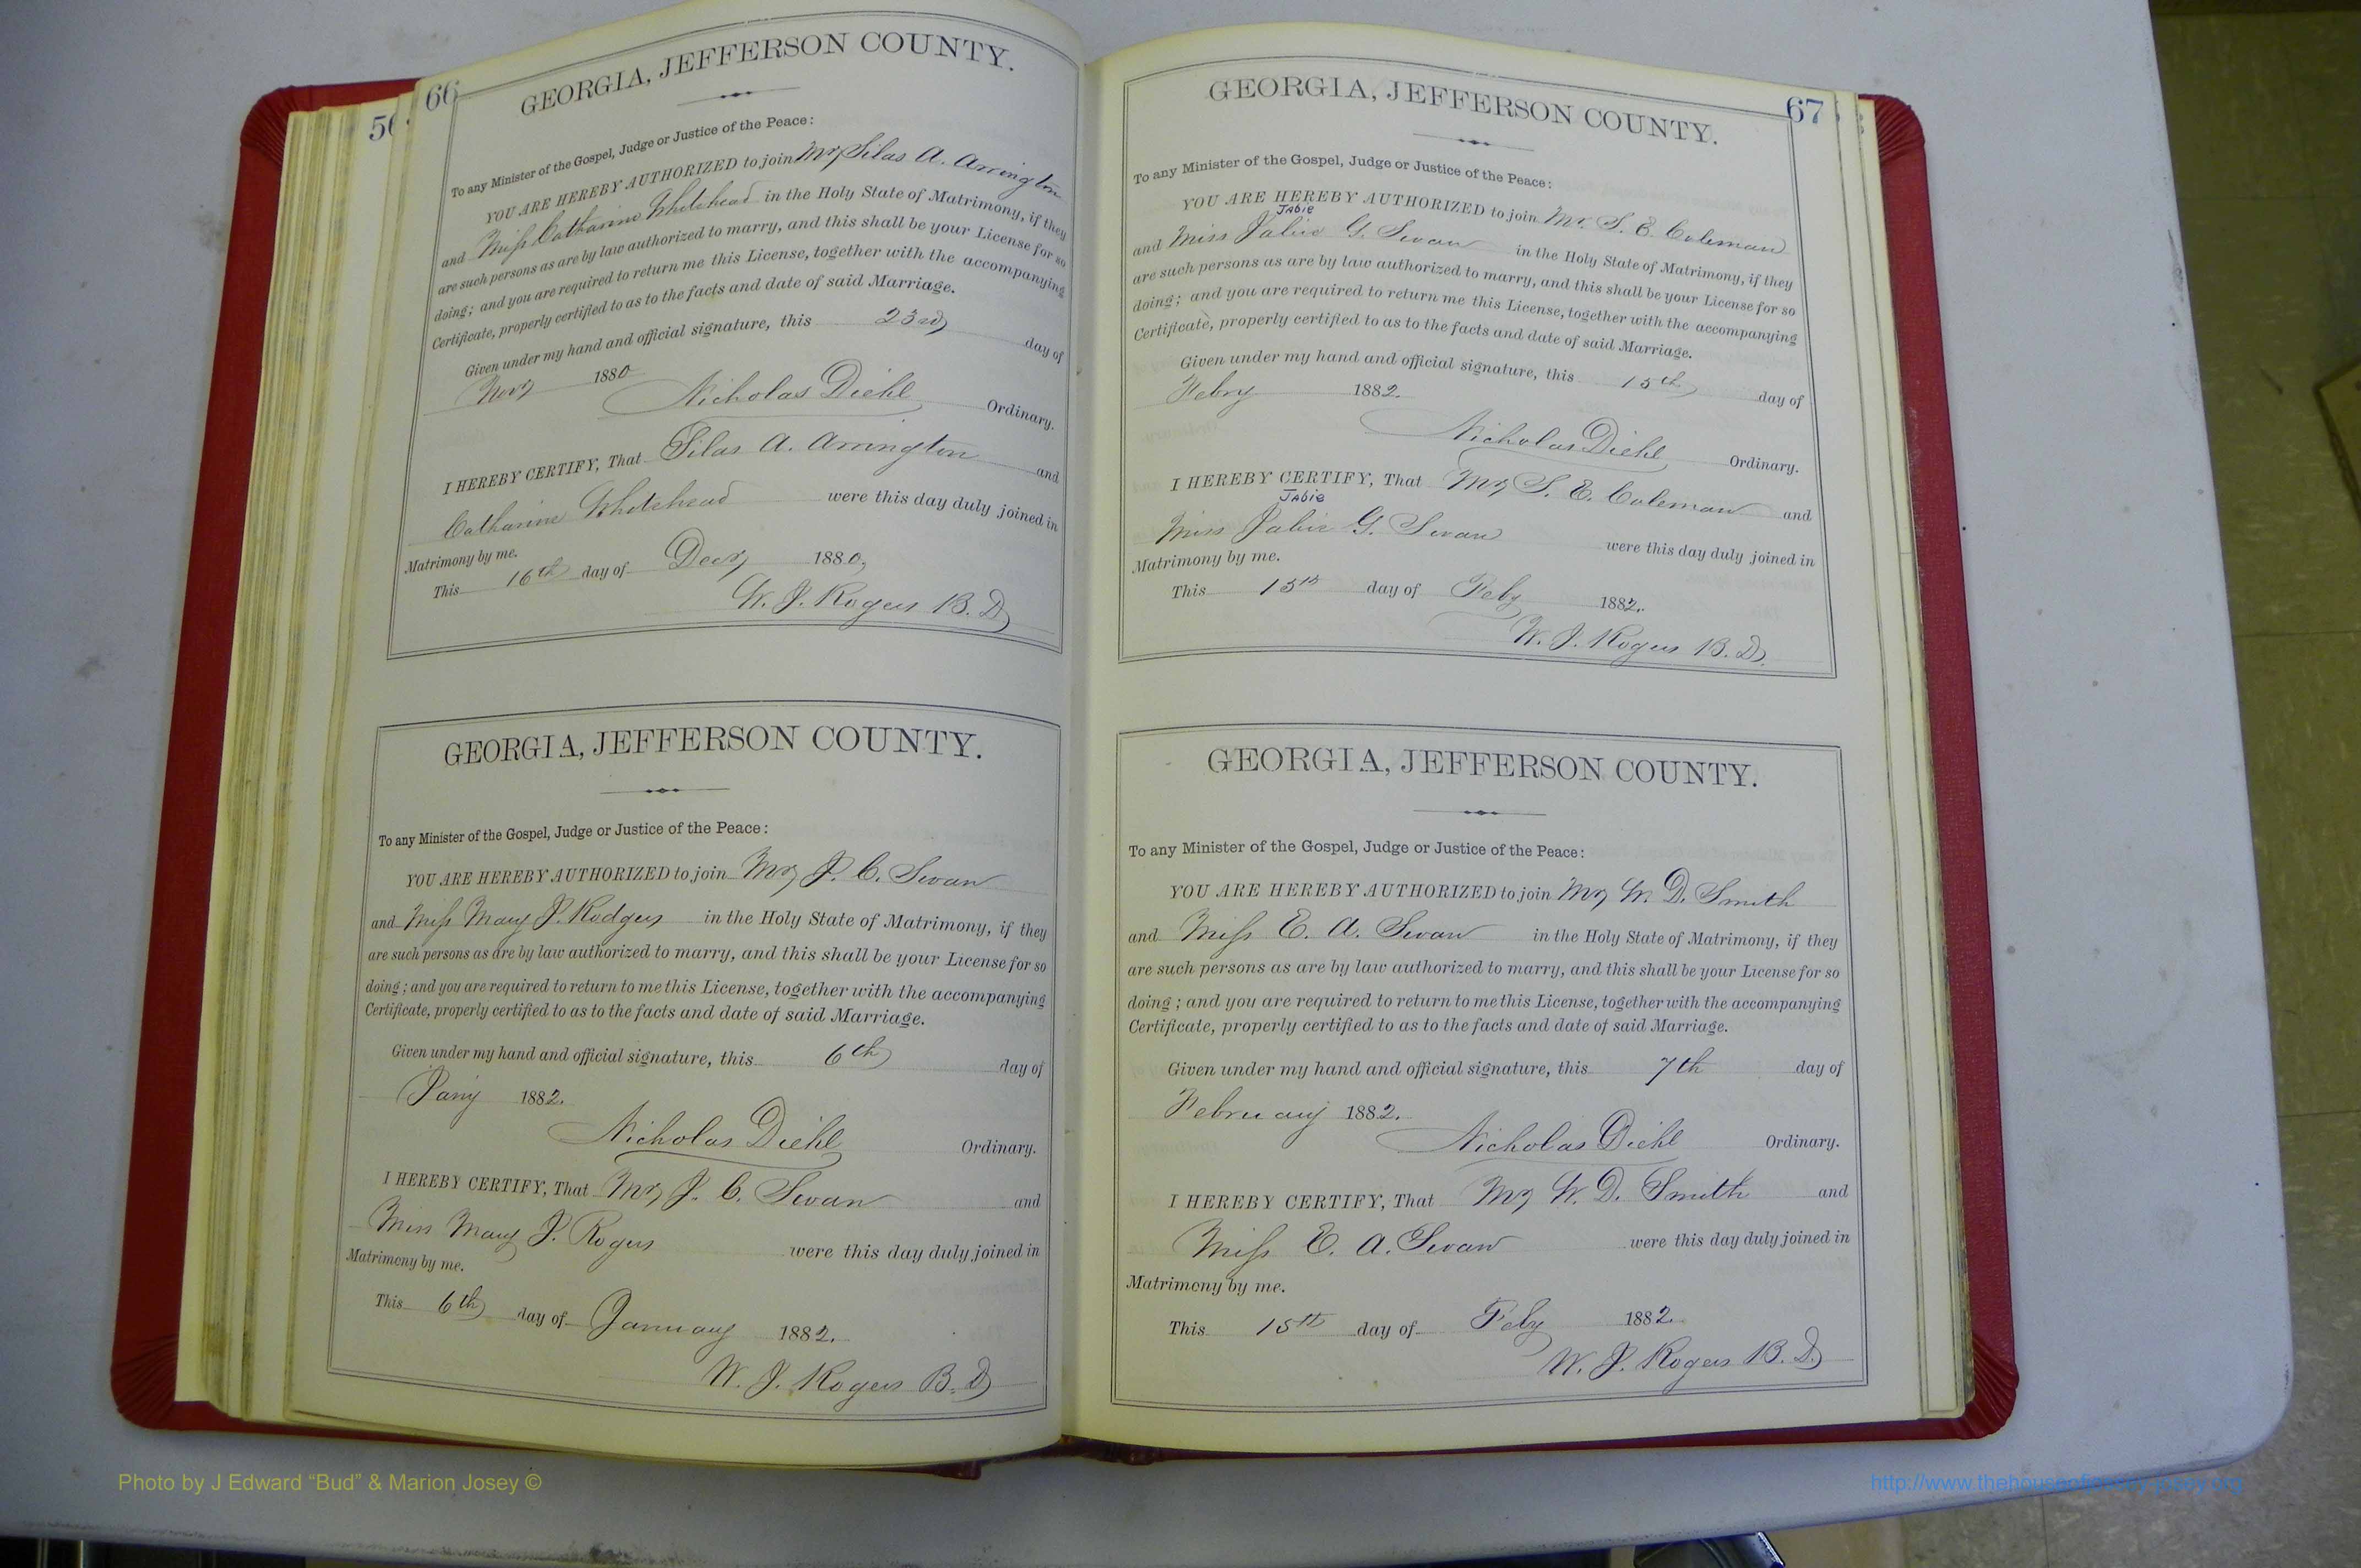 66
GEORGIA, JEFFERSON COUNTY.
To any Minister of the Gospel, Judge or Justice of the Peace:
YOU ARE HEREBY AUTHORIZED to join Mr Silas A. Arrington
and Miss Catharine Whitehead in the Holy State of Matrimony, if they
are such persons as are by law authorized to marry, and this shall be your License for so
doing; and you are required to return me this License, together with the accompanying
Certificate, properly certified to as to the facts and date of said Marriage.
Given under my hand and official signature, this 23rd day of
Novr 1880
Nicholas Diehl Ordinary.
I HEREBY CERTIFY, That Silas A. Arrington and
Catharine Whitehead were this day duly joined in
Matrimony by me.
This 16th day of Decr 1880,
W. J. Rogers B. D
GEORGIA, JEFFERSON COUNTY.
To any Minister of the Gospel, Judge or Justice of the Peace:
YOU ARE HEREBY AUTHORIZED to join Mr J. C. Swan
and Miss Mary J. Rodgers in the Holy State of Matrimony, if they
are such persons as are by law authorized to marry, and this shall be your License for so
doing; and you are required to return to me this License, together with the accompanying
Certificate, properly certified to as to the facts and date of said Marriage.
Given under my hand and official signature, this 6th day of
Jany 1882.
Nicholas Diehl Ordinary.
I HEREBY CERTIFY, That Mr J. C. Swan and
Miss Mary J. Rogers were this day duly joined in
Matrimony by me.
This 6th day of January 1882.
W. J. Rogers B. D
67
GEORGIA, JEFFERSON COUNTY.
To any Minister of the Gospel, Judge or Justice of the Peace:
YOU ARE HEREBY AUTHORIZED to join Mr. S. E. Coleman
JAbie
and Miss Jabie G. Swan in the Holy State of Matrimony, if they
are such persons as are by law authorized to marry, and this shall be your License for so
doing; and you are required to return me this License, together with the accompanying
Certificate, properly certified to as to the facts and date of said Marriage.
Given under my hand and official signature, this 15th day of
Febry 1882.
Nicholas Diehl Ordinary.
I HEREBY CERTIFY, That Mr S. E. Coleman and
JAbie
Miss Jabie G. Swan were this day duly joined in
Matrimony by me.
This 15th day of Feby 1882.
W. J. Rogers B. D.
GEORGIA, JEFFERSON COUNTY.
To any Minister of the Gospel, Judge or Justice of the Peace:
YOU ARE HEREBY AUTHORIZED to join Mr W. D. Smith
and Miss E. A. Swan in the Holy State of Matrimony, if they
are such persons as are by law authorized to marry, and this shall be your License for so
doing; and you are required to return to me this License, together with the accompanying
Certificate, properly certified to as to the facts and date of said Marriage.
Given under my hand and official signature, this 7th day of
February 1882.
Nicholas Diehl Ordinary.
I HEREBY CERTIFY, That Mr W. D. Smith and
Miss E. A. Swan were this day duly joined in
Matrimony by me.
This 15th day of Feby 1882.
W. J. Rogers B. D
Photo by J Edward “Bud” & Marion Josey ©